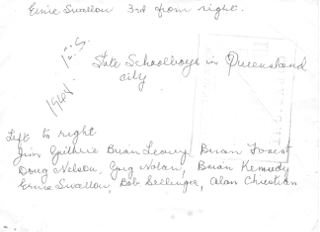 Ernie Swallow 3rd from right.
1964
State Schoolboys in Queensland
city
Left to right
Jim Guthrie Brian Leary Brian Forest
Doug Nelson, Greg Nolan, Brian Kennedy
Ernie Swallow, Bob Sellinger, Alan Christian